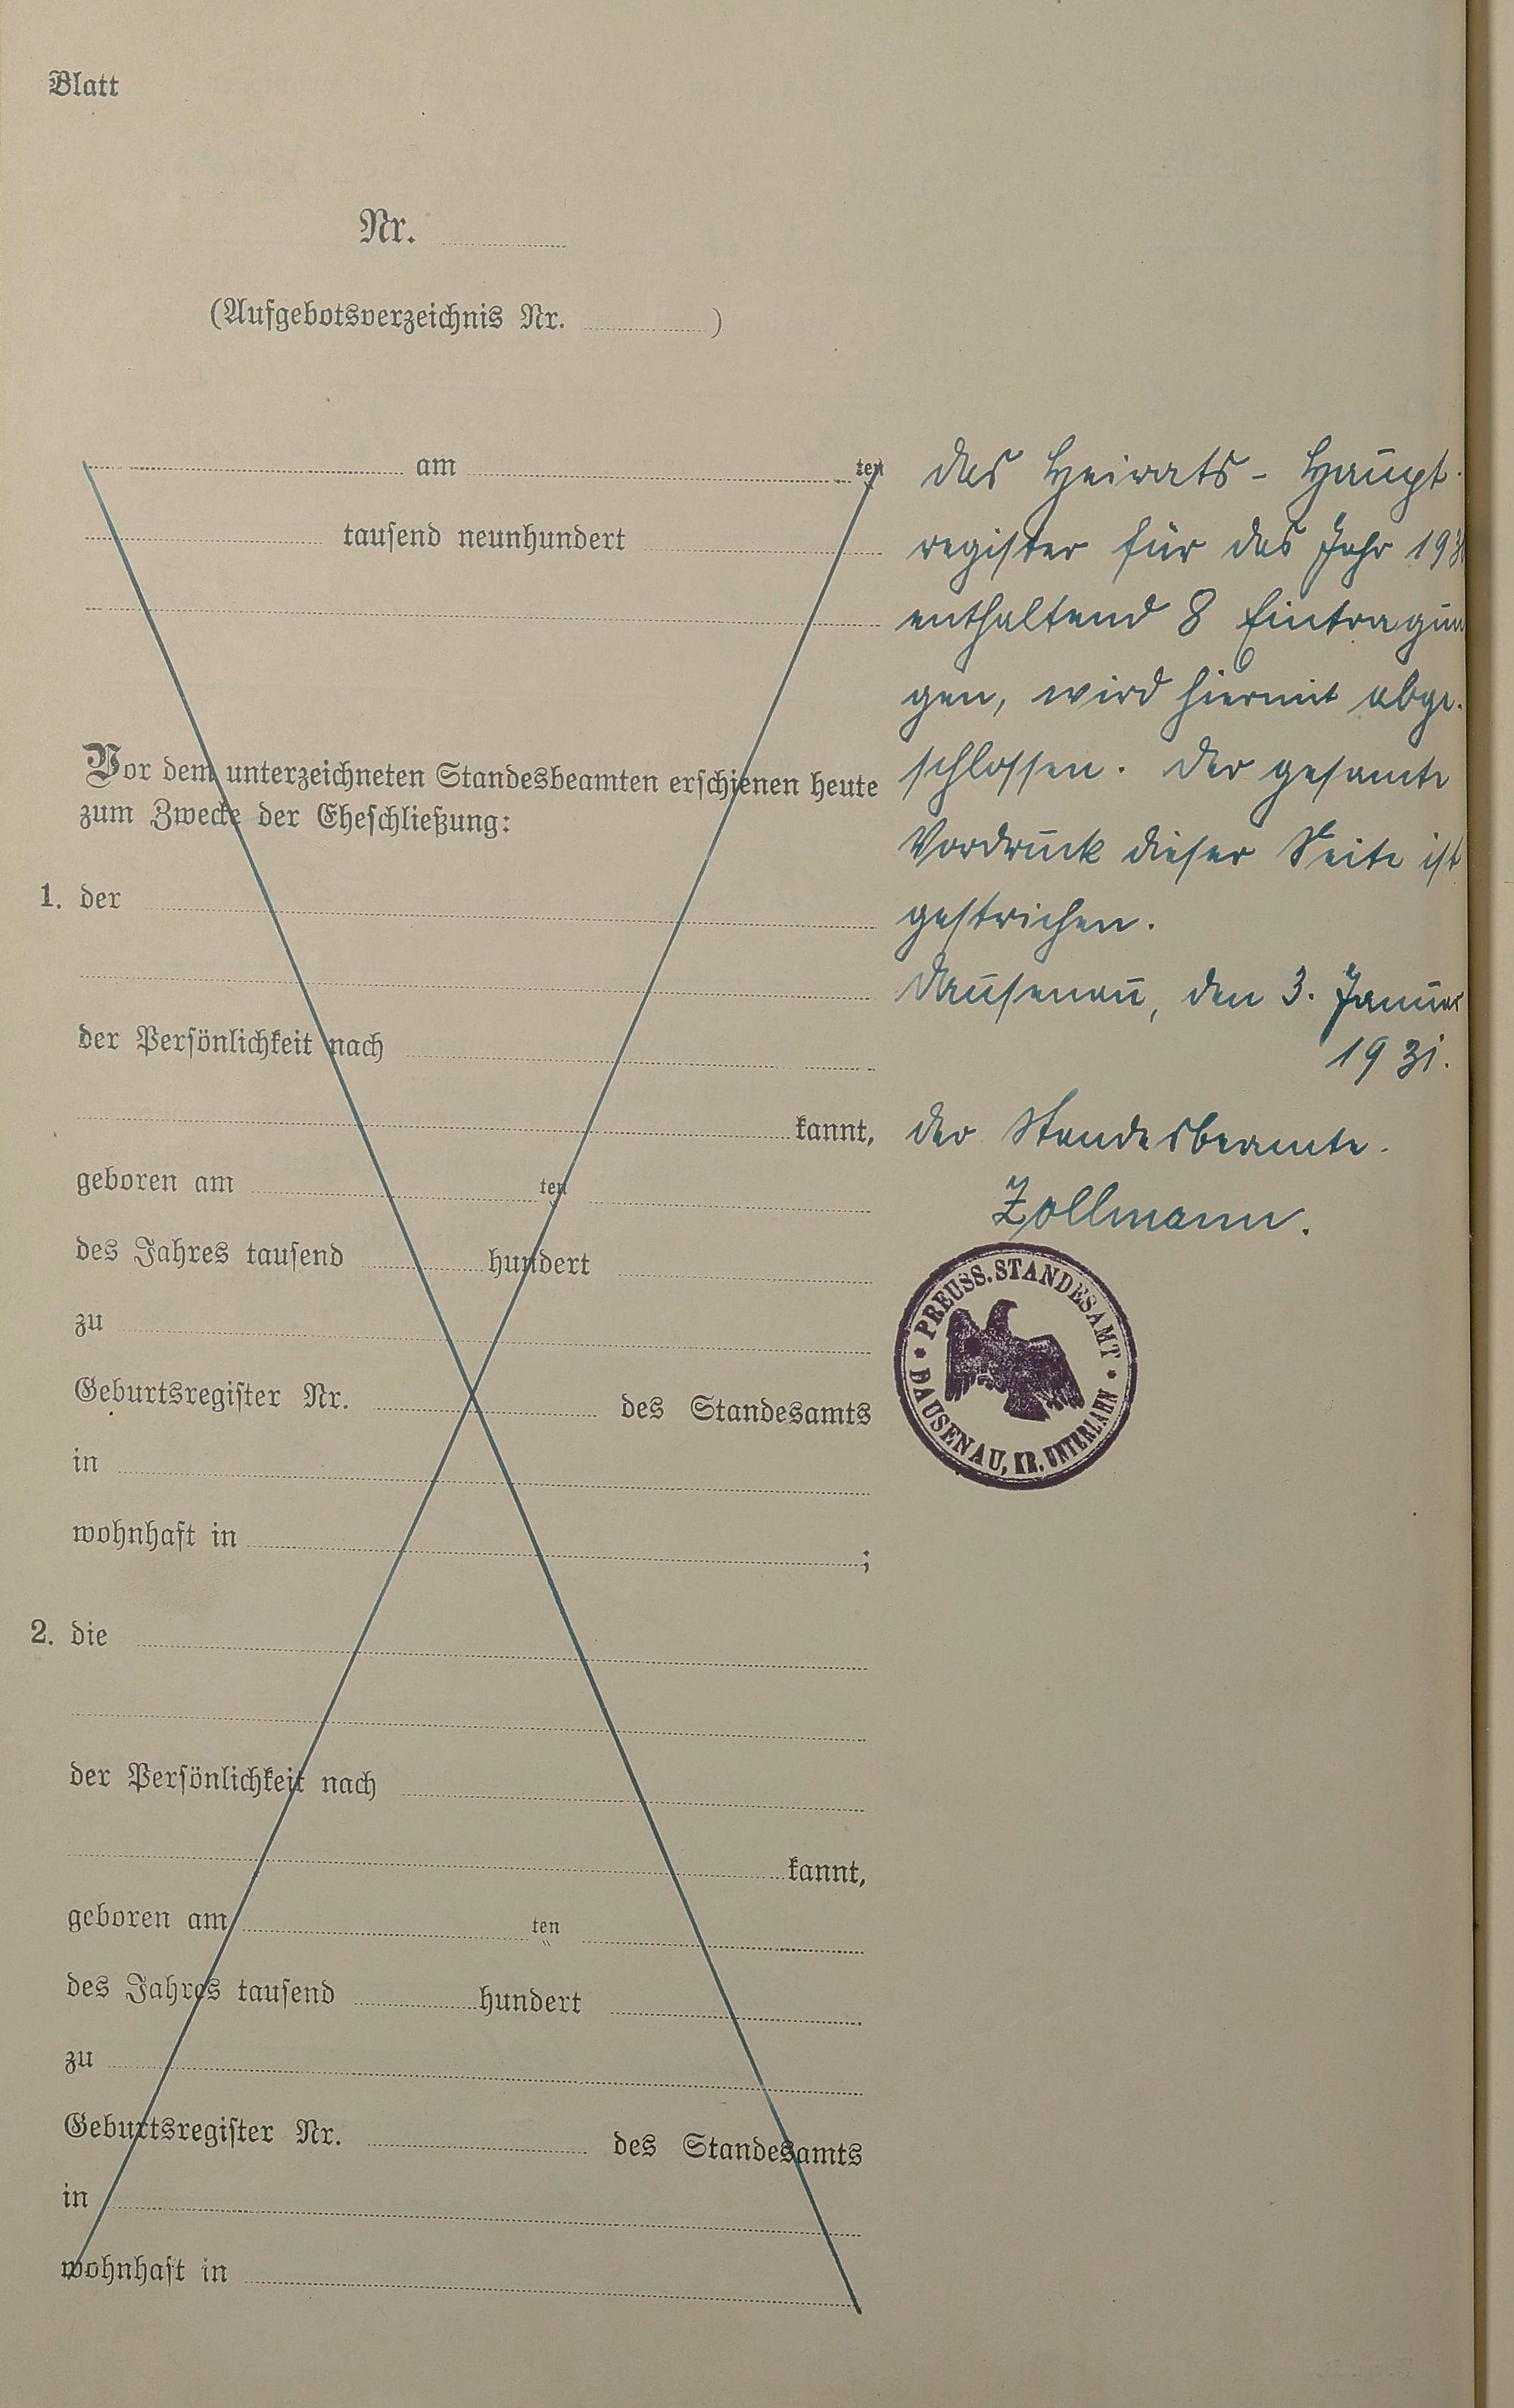 Blatt
Nr.
(Aufgebotsverzeichnis Nr. )
am ten
tausend neunhundert
Vor dem unterzeichneten Standesbeamten erschienen heute
zum Zwecke der Eheschließung:
1. der
der Persönlichkeit nach
kannt,
geboren am ten
des Jahres tausend hundert
zu
Geburtsregister Nr. des Standesamts
in
wohnhaft in ;
2. die
der Persönlichkeit nach
kannt,
geboren am ten
des Jahres tausend hundert
zu
Geburtsregister Nr. des Standesamts
in
wohnhaft in
Das Heirats-Haupt-
register für das Jahr
enthaltend 8 Eintragun
gen, wird hiermit abge-
schlossen. Der gesamte
Vordruck dieser Seite ist
gestrichen.
Dausenau, den 3. Januar
1931.
Der Standesbeamte.
Zollmann.
PREUSS. STANDESAMT
DAUSENAU, KR. UNTERLAHN